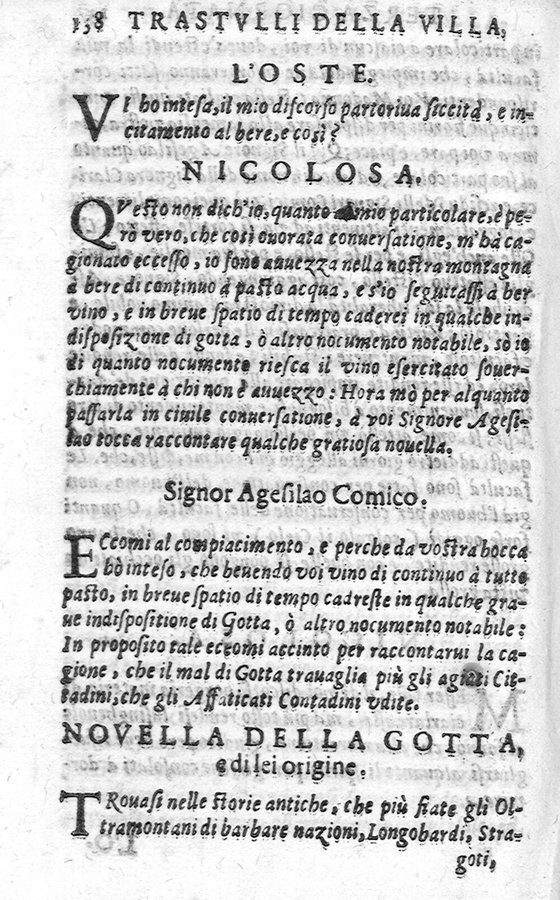 138 TRASTVLLI DELLA VILLA,
L'OSTE.
VI ho inteso, il mio discorso partoriua siccità, e in-
citamento al bere, e così?
NICOLOSA.
QVesto non dich'io, quanto mio particolare, è pe-
rò vero, che così onorata conuersatione, m'hà ca-
gionato eccesso, io sono auuezza nella nostra montagna
à bere di continuo à pasto acqua, e s'io seguitassi à ber
vino, e in breue spatio di tempo caderei in qualche in-
disposizione di gotta, ò altro nocumento notabile, sò io
di quanto nocumento riesca il vino esercitato souer-
chiamente à chi non è auuezzo: Hora mò per alquanto
passarla in ciuile conuersatione, à voi Signore Agesi-
lao tocca raccontare qualche gratiosa nouella.
Signor Agesilao Comico.
ECcomi al compiacimento, e perche da vostra bocca
hò inteso, che beuendo voi vino di continuo à tutto
pasto, in breue spatio di tempo cadreste in qualche gra-
ue indispositione di Gotta, ò altro nocumento notabile:
In proposito tale eccomi accinto per raccontarui la ca-
gione, che il mal di Gotta trauaglia più gli agiati Cit-
tadini, che gli Affaticati Contadini vdite.
NOVELLA DELLA GOTTA,
e di lei origine.
TRouasi nelle storie antiche, che più fiate gli Ol-
tramontani di barbare nazioni, Longobardi, Stra-
goti,